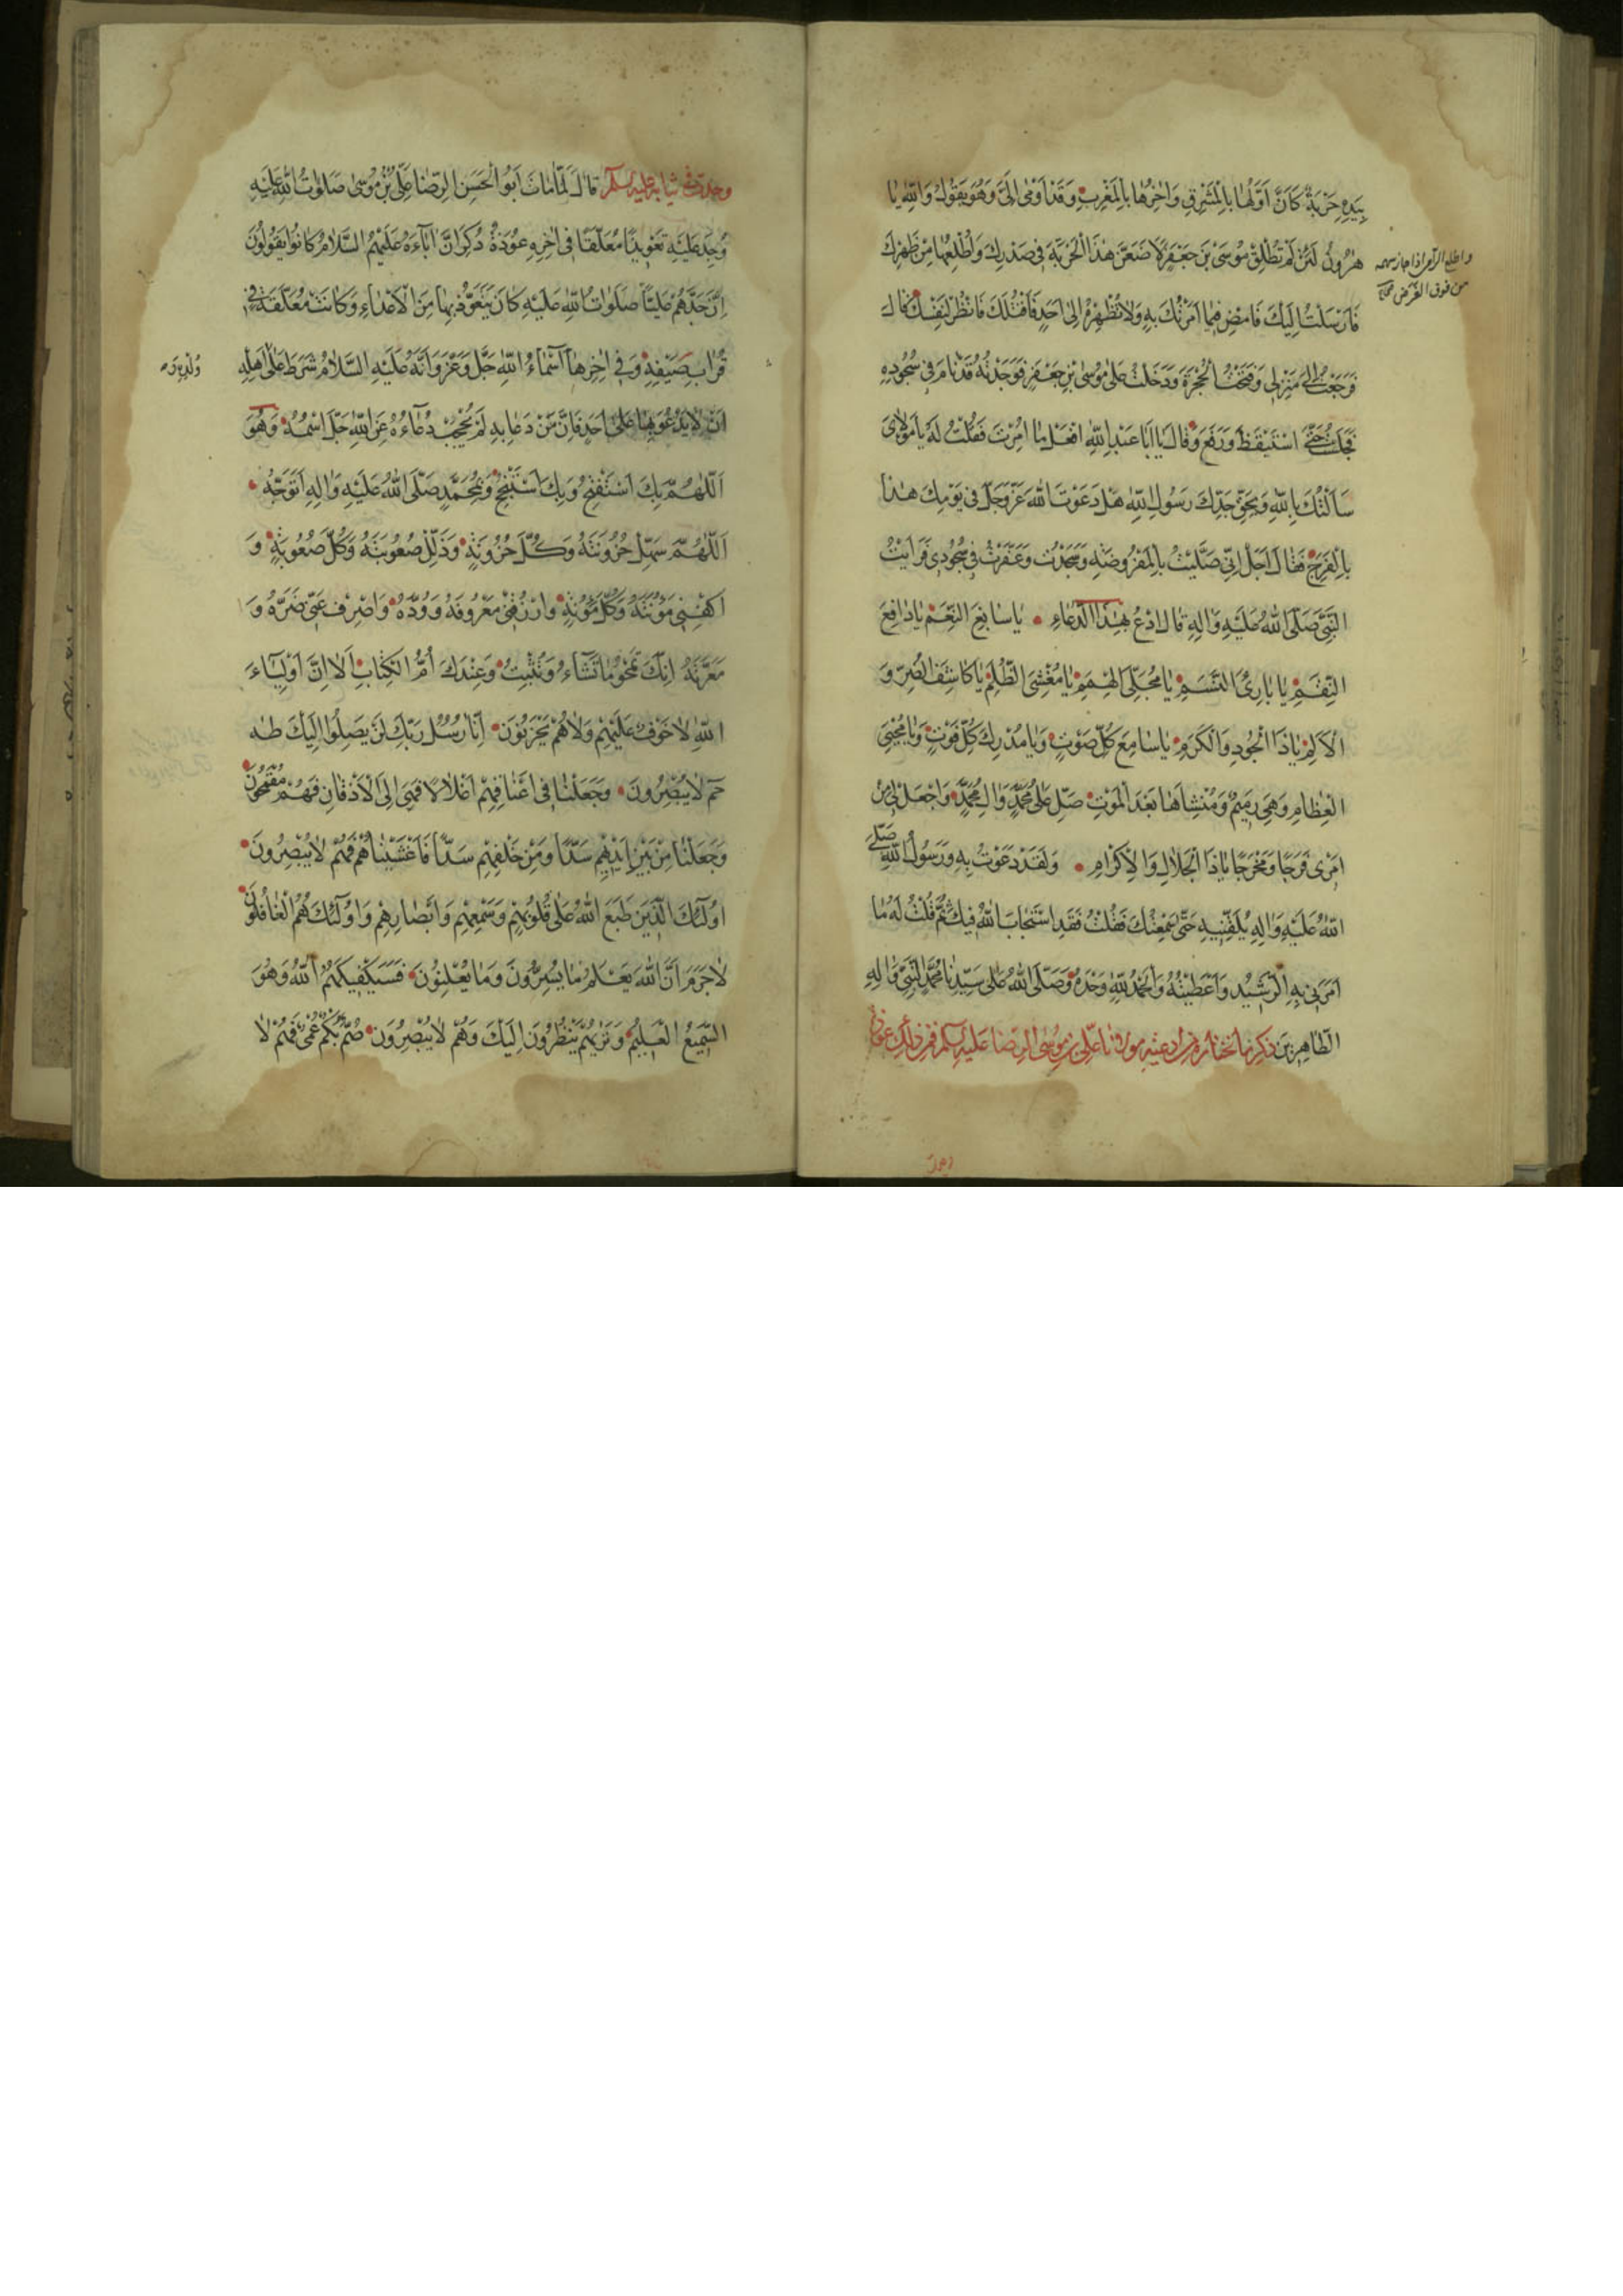 بِيَدِهِ حَرْبَةٌ كَانَ اَوَّلُهَا بِالْمَشْرِقِ وَاٰخِرُهَا بِالْمَغْرِبِ وَقَدْ اَوْمٰى اِلَىَّ وَهُوَ يَقُولُ وَاللّٰهِ يَا
هٰرُونُ لَئِنْ لَمْ تُطْلِقْ مُوسَى بْنَ جَعْفَرٍ لَاَضَعَنَّ هٰذِهِ الْحَرْبَةَ فِى صَدْرِكَ وَاُطْلِعُهَا مِنْ ظَهْرِكَ
واطلع الرامى اذا جاز سهمه
من فوق الغرض
فَاَرْسَلْتُ اِلَيْكَ فَامْضِ فِيمَا اَمَرْتُكَ بِهِ وَلَا تُظْهِرْهُ اِلٰى اَحَدٍ فَاَقْتُلَكَ فَانْظُرْ لِنَفْسِكَ قَالَ
فَرَجَعْتُ اِلٰى مَنْزِلِى وَفَتَحْتُ الْحُجْرَةَ وَدَخَلْتُ عَلٰى مُوسَى بْنِ جَعْفَرٍ فَوَجَدْتُهُ قَدْ نَامَ فِى سُجُودِهِ
فَجَلَسْتُ حَتّٰى اسْتَيْقَظَ وَرَفَعَ وَقَالَ يَا اَبَا عَبْدِ اللّٰهِ افْعَلْ مَا اُمِرْتَ فَقُلْتُ لَهُ يَا مَوْلَاىَ
سَاَلْتُكَ بِاللّٰهِ وَبِحَقِّ جَدِّكَ رَسُولِ اللّٰهِ هَلْ دَعَوْتَ اللّٰهَ عَزَّ وَجَلَّ فِى يَوْمِكَ هٰذَا
بِالْفَرَجِ فَقَالَ اَجَلْ اِنِّى صَلَّيْتُ بِالْمَفْرُوضَةِ وَسَجَدْتُ وَغَفَوْتُ فِى سُجُودِى فَرَاَيْتُ
النَّبِىَّ صَلَّى اللّٰهُ عَلَيْهِ وَاٰلِهِ قَالَ ادْعُ بِهٰذَا الدُّعَاءِ يَا سَابِغَ النِّعَمِ يَا دَافِعَ
النِّقَمِ يَا بَارِئَ النَّسَمِ يَا مُجَلِّىَ الْهِمَمِ يَا مُغْشِىَ الظُّلَمِ يَا كَاشِفَ الضُّرِّ وَ
الْاَلَمِ يَا ذَا الْجُودِ وَالْكَرَمِ يَا سَامِعَ كُلِّ صَوْتٍ وَيَا مُدْرِكَ كُلِّ فَوْتٍ وَيَا مُحْيِىَ
الْعِظَامِ وَهِىَ رَمِيمٌ وَمُنْشِئَهَا بَعْدَ الْمَوْتِ صَلِّ عَلٰى مُحَمَّدٍ وَاٰلِ مُحَمَّدٍ وَاجْعَلْ لِى مِنْ
اَمْرِى فَرَجًا وَمَخْرَجًا يَا ذَا الْجَلَالِ وَالْاِكْرَامِ وَلَقَدْ دَعَوْتُ بِهِ وَرَسُولُ اللّٰهِ صَلَّى
اللّٰهُ عَلَيْهِ وَاٰلِهِ يُلَقِّنِيهِ حَتّٰى سَمِعْتُكَ فَقُلْتُ فَقَدِ اسْتَجَابَ اللّٰهُ فِيكَ ثُمَّ قُلْتُ لَهُ مَا
اَمَرَنِى بِهِ الرَّشِيدُ وَاَعْطَيْتُهُ وَالْحَمْدُ لِلّٰهِ وَحْدَهُ وَصَلَّى اللّٰهُ عَلٰى سَيِّدِنَا مُحَمَّدٍ النَّبِىِّ وَاٰلِهِ
الطَّاهِرِينَ ذكر ما نختاره من ادعية مولانا على بن موسى الرضا عليه السلم فمن ذلك عوذة
وجدت فى ثيابه عليه السلم قَالَ لَمَّا مَاتَ اَبُو الْحَسَنِ الرِّضَا عَلِىُّ بْنُ مُوسٰى صَلَوٰتُ اللّٰهِ عَلَيْهِ
وُجِدَ عَلَيْهِ تَعْوِيذًا مُعَلَّقًا فِى اٰخِرِهِ عُوذَةٌ ذُكِرَ اَنَّ اٰبَاءَهُ عَلَيْهِمُ السَّلَامُ كَانُوا يَقُولُونَ
اِنَّ جَدَّهُمْ عَلِيًّا صَلَوَاتُ اللّٰهِ عَلَيْهِ كَانَ يَتَعَوَّذُ بِهَا مِنَ الْاَعْدَاءِ وَكَانَتْ مُعَلَّقَةً فِى
قُرَابِ سَيْفِهِ وَفِى اٰخِرِهَا اَسْمَاءُ اللّٰهِ جَلَّ وَعَزَّ وَاَنَّهُ عَلَيْهِ السَّلَامُ شَرَطَ عَلٰى اَهْلِهِ
اَنْ لَا يَدْعُوَ بِهَا عَلٰى اَحَدٍ فَاِنَّ مَنْ دَعَا بِهِ لَمْ يُحْجَبْ دُعَاءُهُ عَنِ اللّٰهِ جَلَّ اسْمُهُ وَهُوَ
اَللّٰهُمَّ بِكَ اَسْتَفْتِحُ وَبِكَ اَسْتَنْجِحُ وَبِمُحَمَّدٍ صَلَّى اللّٰهُ عَلَيْهِ وَاٰلِهِ اَتَوَجَّهُ
اَللّٰهُمَّ سَهِّلْ حُزُونَتَهُ وَكُلَّ حُزُونَةٍ وَذَلِّلْ صُعُوبَتَهُ وَكُلَّ صُعُوبَةٍ وَ
اكْفِنِى مَؤُنَتَهُ وَكُلَّ مَؤُنَةٍ وَارْزُقْنِى مَعْرُوفَهُ وَوُدَّهُ وَاصْرِفْ عَنِّى ضَرَّهُ وَ
مَعَرَّتَهُ اِنَّكَ تَمْحُو مَا تَشَاءُ وَتُثْبِتُ وَعِنْدَكَ اُمُّ الْكِتَابِ اَلَا اِنَّ اَوْلِيَاءَ
اللّٰهِ لَا خَوْفٌ عَلَيْهِمْ وَلَا هُمْ يَحْزَنُونَ اِنَّا رُسُلُ رَبِّكَ لَنْ يَصِلُوا اِلَيْكَ طٰهٰ
حٰم لَا يُبْصِرُونَ وَجَعَلْنَا فِى اَعْنَاقِهِمْ اَغْلَالًا فَهِىَ اِلَى الْاَذْقَانِ فَهُمْ مُقْمَحُونَ
وَجَعَلْنَا مِنْ بَيْنِ اَيْدِيهِمْ سَدًّا وَمِنْ خَلْفِهِمْ سَدًّا فَاَغْشَيْنَاهُمْ فَهُمْ لَا يُبْصِرُونَ
اُولٰئِكَ الَّذِينَ طَبَعَ اللّٰهُ عَلٰى قُلُوبِهِمْ وَسَمْعِهِمْ وَاَبْصَارِهِمْ وَاُولٰئِكَ هُمُ الْغَافِلُونَ
لَا جَرَمَ اَنَّ اللّٰهَ يَعْلَمُ مَا يُسِرُّونَ وَمَا يُعْلِنُونَ فَسَيَكْفِيكَهُمُ اللّٰهُ وَهُوَ
السَّمِيعُ الْعَلِيمُ وَتَرٰيهُمْ يَنْظُرُونَ اِلَيْكَ وَهُمْ لَا يُبْصِرُونَ صُمٌّ بُكْمٌ عُمْىٌ فَهُمْ لَا